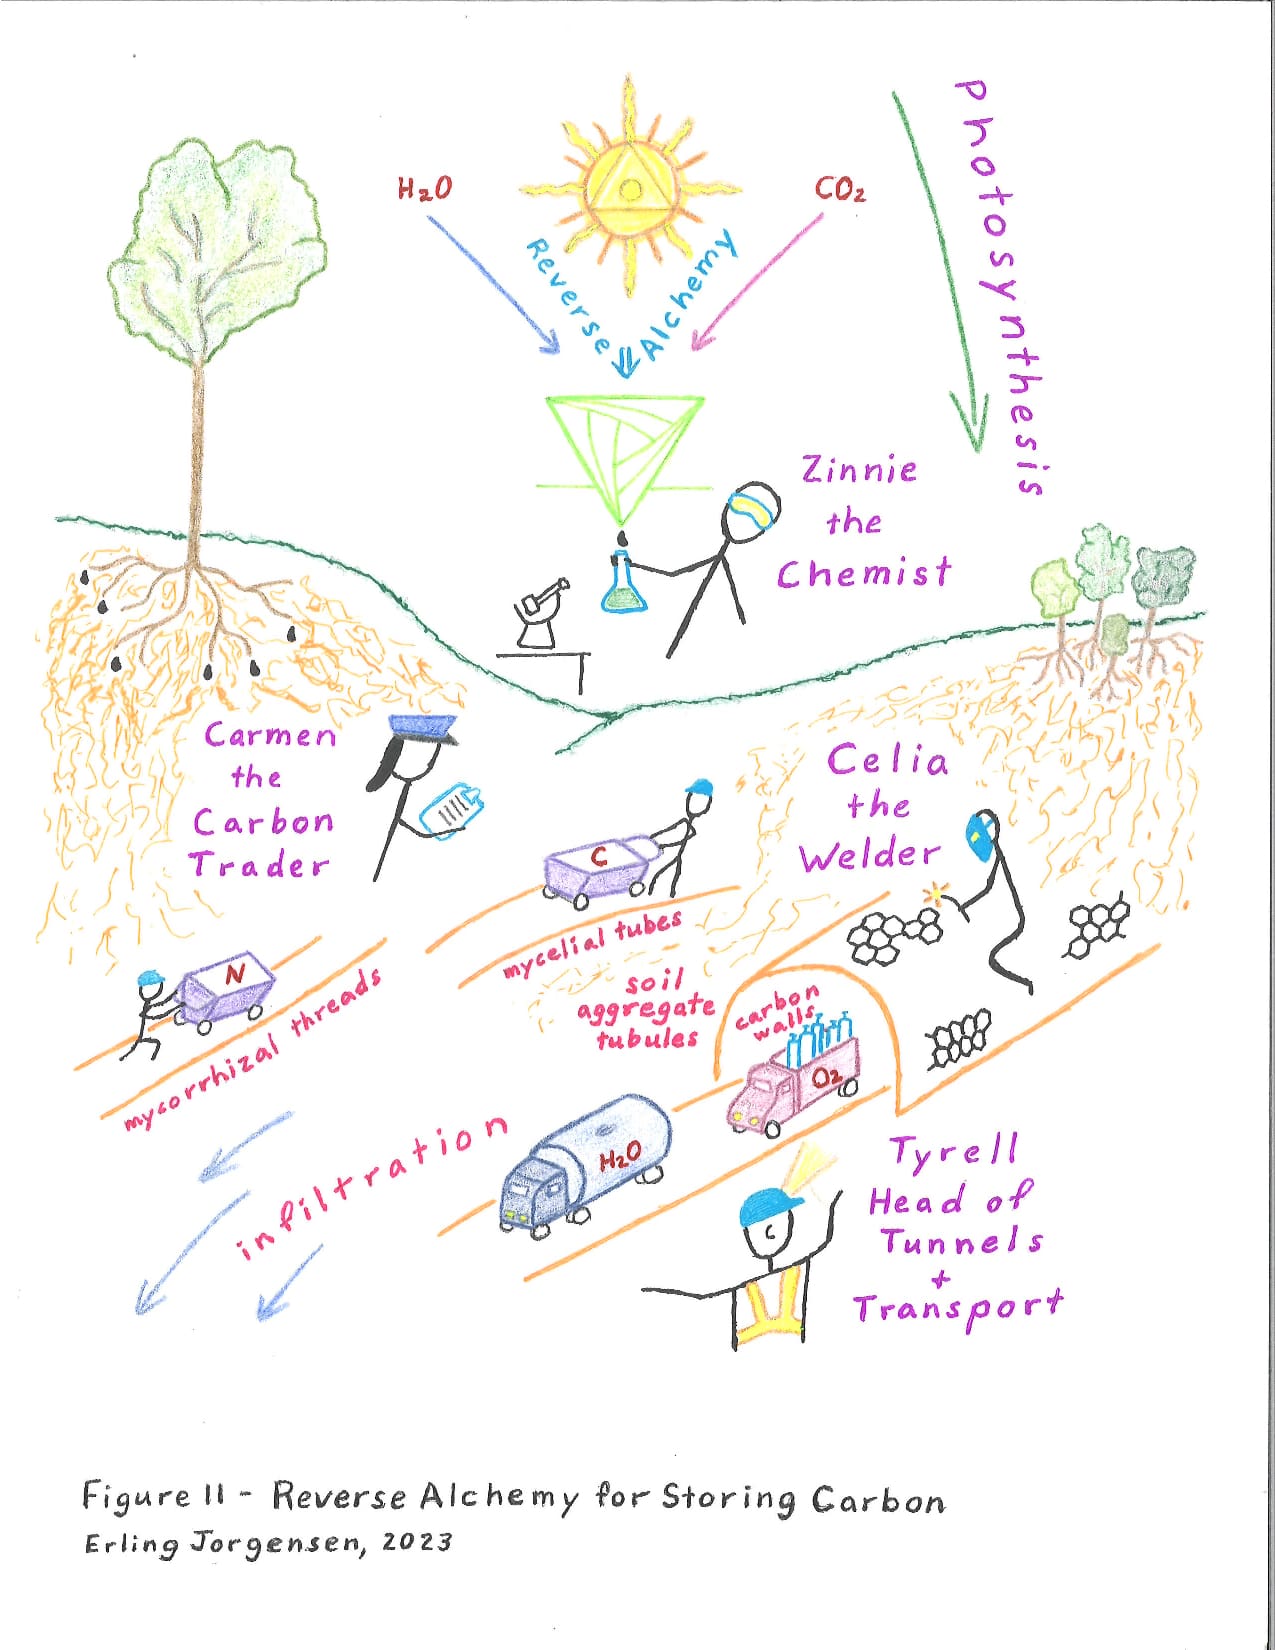 H₂O
CO₂
Reverse Alchemy
Photosynthesis
Zinnie
the
Chemist
Carmen
the
Carbon
Trader
Celia
the
Welder
C
mycelial tubes
N
mycorrhizal threads
soil
aggregate
tubules
carbon
walls
O₂
H₂O
infiltration
Tyrell
Head of
Tunnels
+
Transport
Figure 11 - Reverse Alchemy for Storing Carbon
Erling Jorgensen, 2023